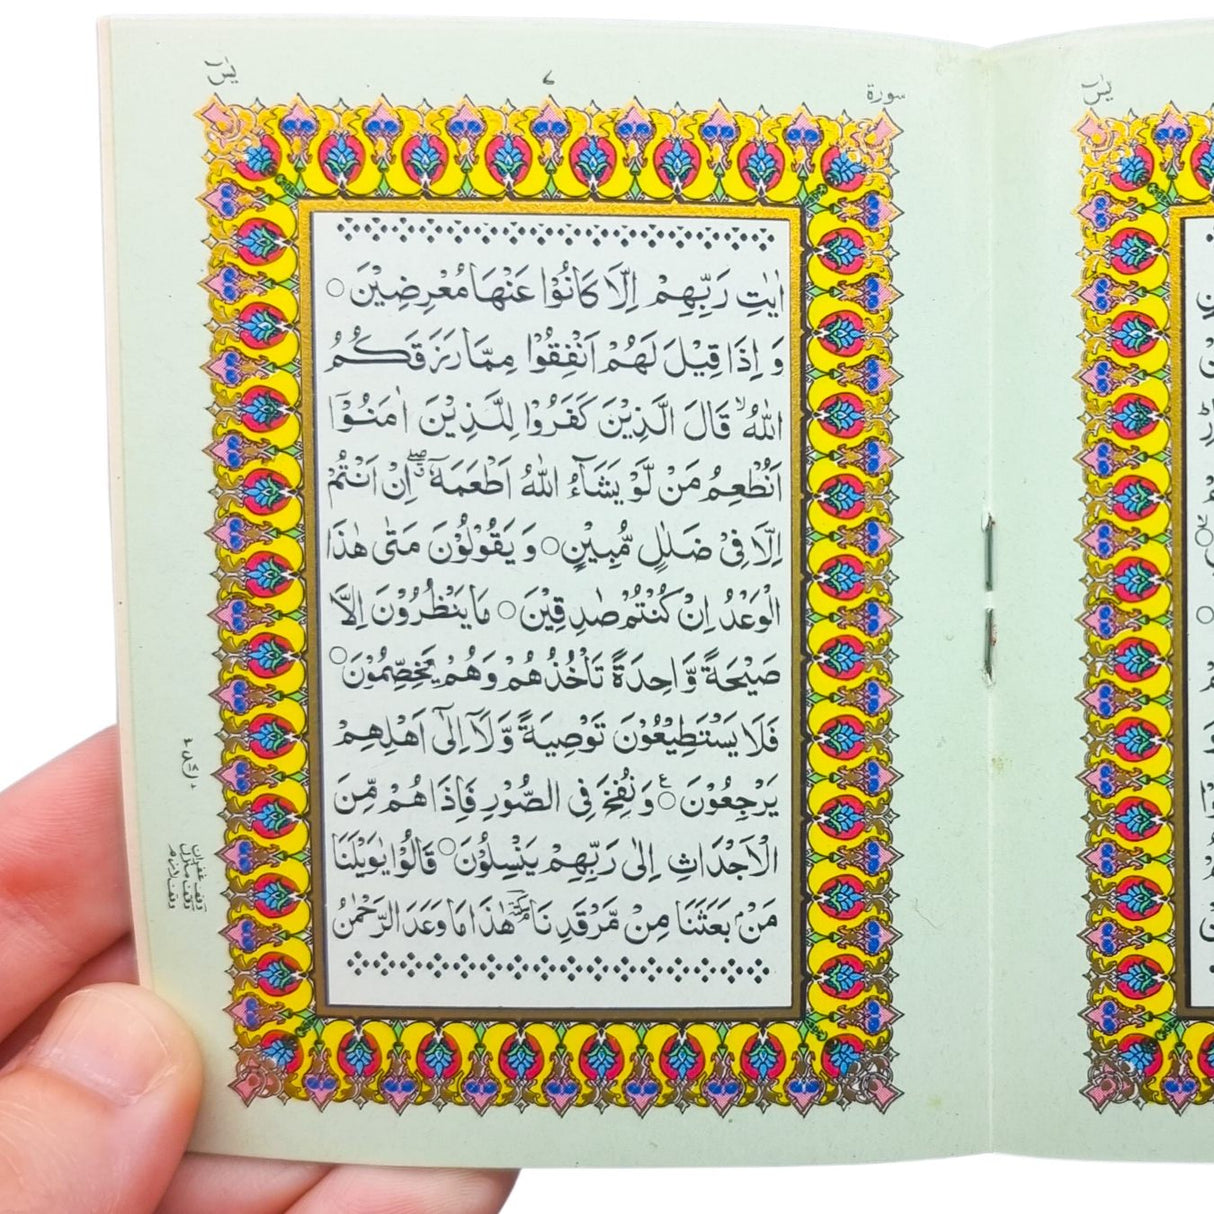 سورة ٧ يٰسٓ
اٰيٰتِ رَبِّهِمْ اِلَّا كَانُوْا عَنْهَا مُعْرِضِيْنَ ○
وَ اِذَا قِيْلَ لَهُمْ اَنْفِقُوْا مِمَّا رَزَقَكُمُ
اللّٰهُ ۙ قَالَ الَّذِيْنَ كَفَرُوْا لِلَّذِيْنَ اٰمَنُوْٓا
اَنُطْعِمُ مَنْ لَّوْ يَشَآءُ اللّٰهُ اَطْعَمَهٗٓ ۖ اِنْ اَنْتُمْ
اِلَّا فِيْ ضَلٰلٍ مُّبِيْنٍ ○ وَ يَقُوْلُوْنَ مَتٰى هٰذَا
الْوَعْدُ اِنْ كُنْتُمْ صٰدِقِيْنَ ○ مَا يَنْظُرُوْنَ اِلَّا
صَيْحَةً وَّاحِدَةً تَاْخُذُهُمْ وَهُمْ يَخِصِّمُوْنَ ○
فَلَا يَسْتَطِيْعُوْنَ تَوْصِيَةً وَّلَآ اِلٰٓى اَهْلِهِمْ
يَرْجِعُوْنَ ○ ع وَنُفِخَ فِي الصُّوْرِ فَاِذَا هُمْ مِّنَ
الْاَجْدَاثِ اِلٰى رَبِّهِمْ يَنْسِلُوْنَ ○ قَالُوْا يٰوَيْلَنَا
مَنْۢ بَعَثَنَا مِنْ مَّرْقَدِنَا ۘ هٰذَا مَا وَعَدَ الرَّحْمٰنُ
وقف غفران
وقف منزل
وقف لازم
يٰسٓ